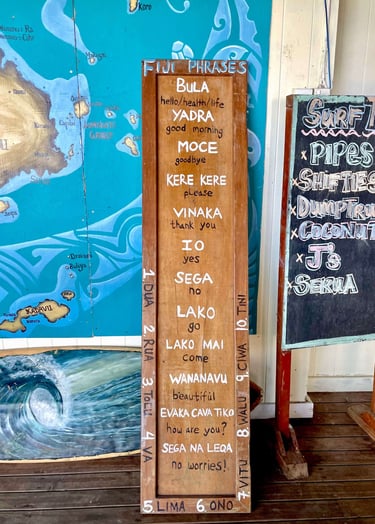 Koro
KADAVU
FIJI PHRASES
BULA
hello/health/life
YADRA
good morning
MOCE
goodbye
KERE KERE
please
VINAKA
thank you
IO
yes
SEGA
no
LAKO
go
LAKO MAI
come
WANANAVU
beautiful
EVAKA CAVA TIKO
how are you?
SEGA NA LEQA
no worries!
1. DUA
2. RUA
3. TOLU
4 VA
5 LIMA 6 ONO
7 VITU
8. WALU
9 CIWA
10. TINI
SURF
PIPES
x SHIFTIES
x DUMPTRU
x COCONUT
x J's
x SERUA